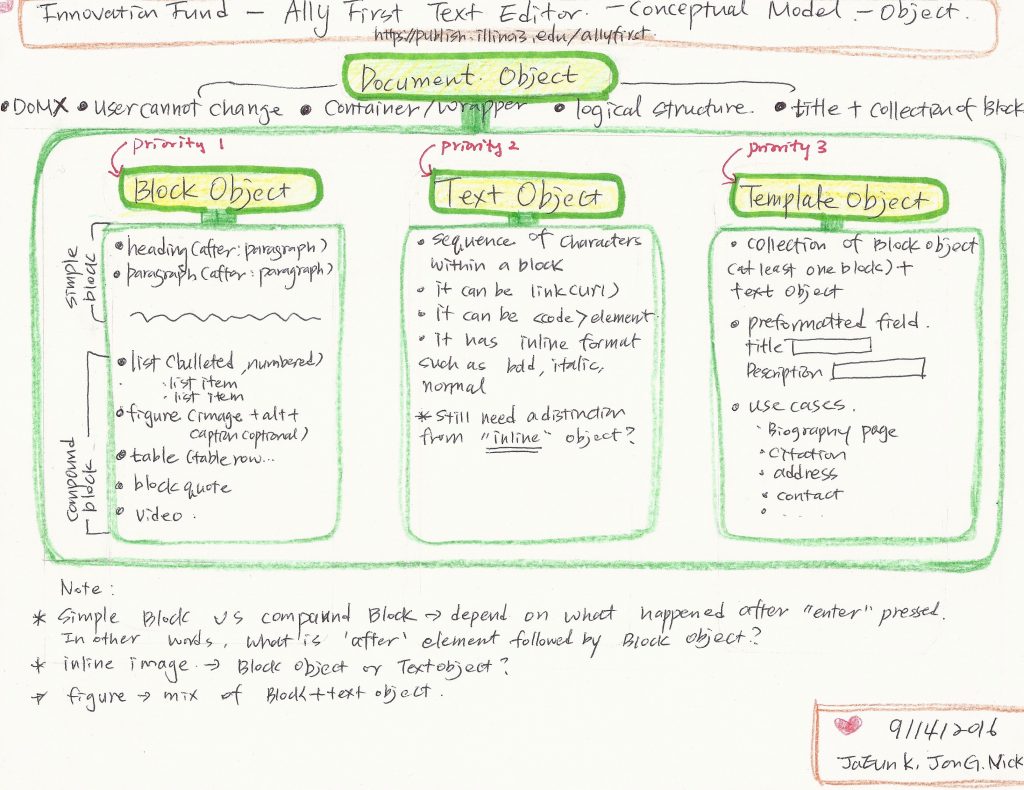 Innovation Fund – Ally First Text Editor. – Conceptual Model – Object.
https://publish.illinois.edu/allyfirst.
Document Object
• DOMX • user cannot change • Container/wrapper • logical structure. • title + collection of Block
priority 1
Block Object
simple block
• heading (after: paragraph)
• paragraph (after: paragraph)
compound block
• list (bulleted, numbered)
· list item
· list item
• figure (image + alt +
caption (optional)
• table (table row...
• block quote
• video.
priority 2
Text Object
• sequence of characters
within a block
• it can be link (url)
• it can be <code> element.
• it has inline format
such as bold, italic,
normal
* still need a distinction
from "inline" object?
priority 3
Template Object
• collection of Block object
(at least one block) +
text object
• preformatted field.
title
Description
• use cases.
• Biography page
• citation
• address
• contact
• . . . .
Note:
* Simple Block vs compound Block → depend on what happened after "enter" pressed.
In other words, what is 'after' element followed by Block object?
* inline image. → Block object or Text object?
* figure → mix of Block + text object.
9/14/2016
JaEun K, Jon G. Nick